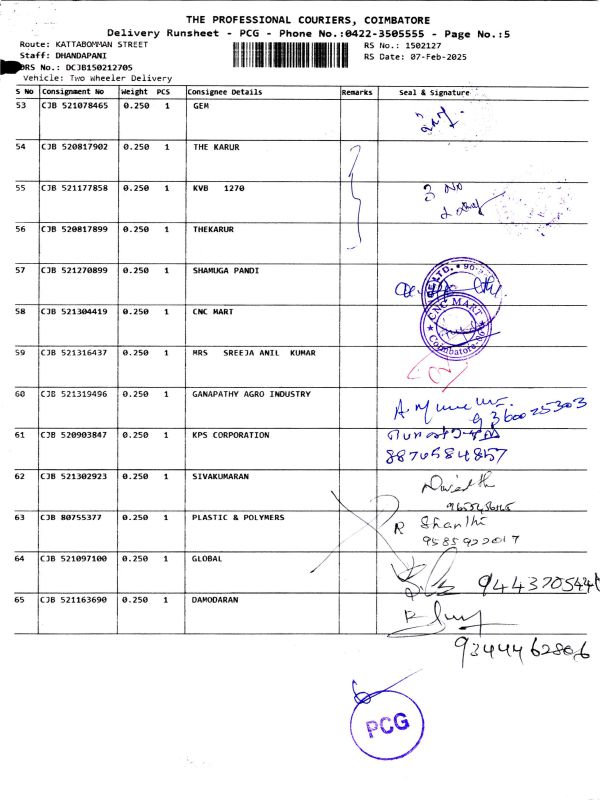 THE PROFESSIONAL COURIERS, COIMBATORE
Delivery Runsheet - PCG - Phone No.:0422-3505555 - Page No.:5
Route: KATTABOMMAN STREET
RS No.: 1502127
Staff: DHANDAPANI
RS Date: 07-Feb-2025
DRS No.: DCJB150212705
Vehicle: Two Wheeler Delivery
S No Consignment No Weight PCS Consignee Details Remarks Seal & Signature
53 CJB 521078465 0.250 1 GEM
54 CJB 520817902 0.250 1 THE KARUR
55 CJB 521177858 0.250 1 KVB 1270
3 No
56 CJB 520817899 0.250 1 THEKARUR
57 CJB 521270899 0.250 1 SHAMUGA PANDI
58 CJB 521304419 0.250 1 CNC MART
CNC MART
Coimbatore
59 CJB 521316437 0.250 1 MRS SREEJA ANIL KUMAR
60 CJB 521319496 0.250 1 GANAPATHY AGRO INDUSTRY
9360025303
61 CJB 520903847 0.250 1 KPS CORPORATION
8870584857
62 CJB 521302923 0.250 1 SIVAKUMARAN
63 CJB 80755377 0.250 1 PLASTIC & POLYMERS
R Shanthi
9585922017
64 CJB 521097100 0.250 1 GLOBAL
65 CJB 521163690 0.250 1 DAMODARAN
9344462806
PCG